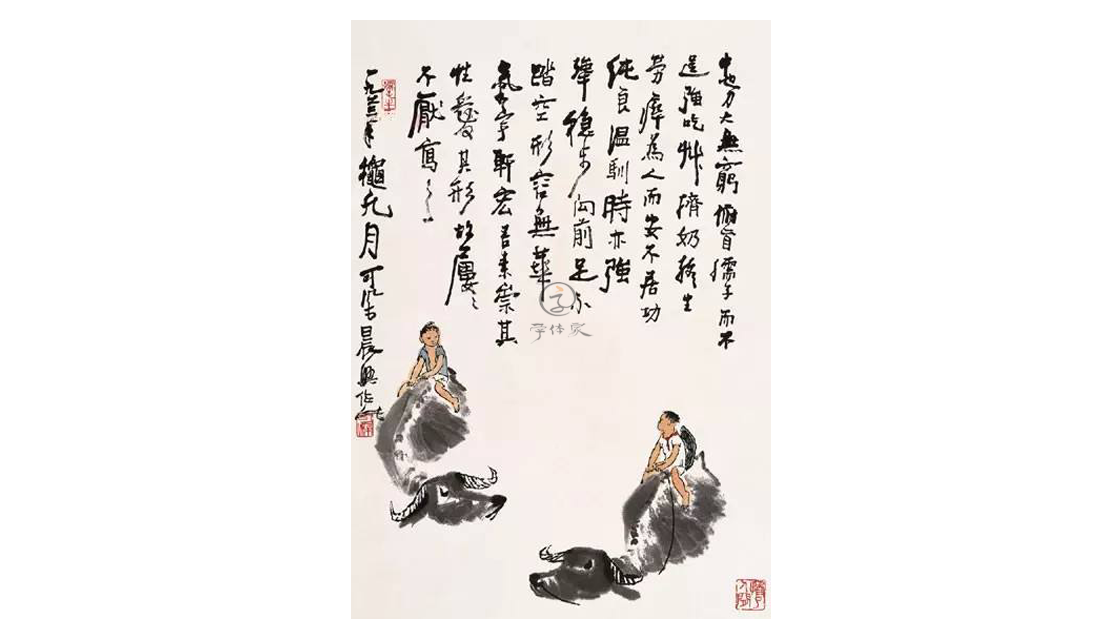 牛也力大無窮俯首孺子而不
逞強吃艸擠奶終生
勞瘁為人而安不居功
純良溫馴時亦強
犟穩步向前足不
踏空形容無華
氣宇軒宏吾素崇其
性愛其形故屢〻
不厭寫之
一九 年穐九月可染晨興作
字体家